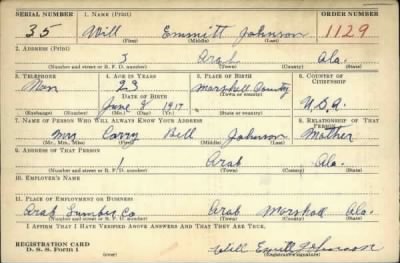 SERIAL NUMBER 1. NAME (Print) ORDER NUMBER
35 Will Emmitt Johnson 1129
(First) (Middle) (Last)
2. ADDRESS (Print)
Arab Ala.
(Number and street or R. F. D. number) (Town) (County) (State)
3. TELEPHONE 4. AGE IN YEARS 5. PLACE OF BIRTH 6. COUNTRY OF CITIZENSHIP
23 Marshall County
DATE OF BIRTH (Town or county)
June 8 1917 U.S.A.
(Exchange) (Number) (Mo.) (Day) (Yr.) (State or country)
7. NAME OF PERSON WHO WILL ALWAYS KNOW YOUR ADDRESS 8. RELATIONSHIP OF THAT PERSON
Mrs Carry Bell Johnson Mother
(Mr., Mrs., Miss) (First) (Middle) (Last)
9. ADDRESS OF THAT PERSON
1 Arab Ala.
(Number and street or R. F. D. number) (Town) (County) (State)
10. EMPLOYER'S NAME
11. PLACE OF EMPLOYMENT OR BUSINESS
Arab Lumber Co Arab Marshall Ala.
(Number and street or R. F. D. number) (Town) (County) (State)
I AFFIRM THAT I HAVE VERIFIED ABOVE ANSWERS AND THAT THEY ARE TRUE.
REGISTRATION CARD
D. S. S. Form 1 (over) Will Emitt Johnson
(Registrant's signature)